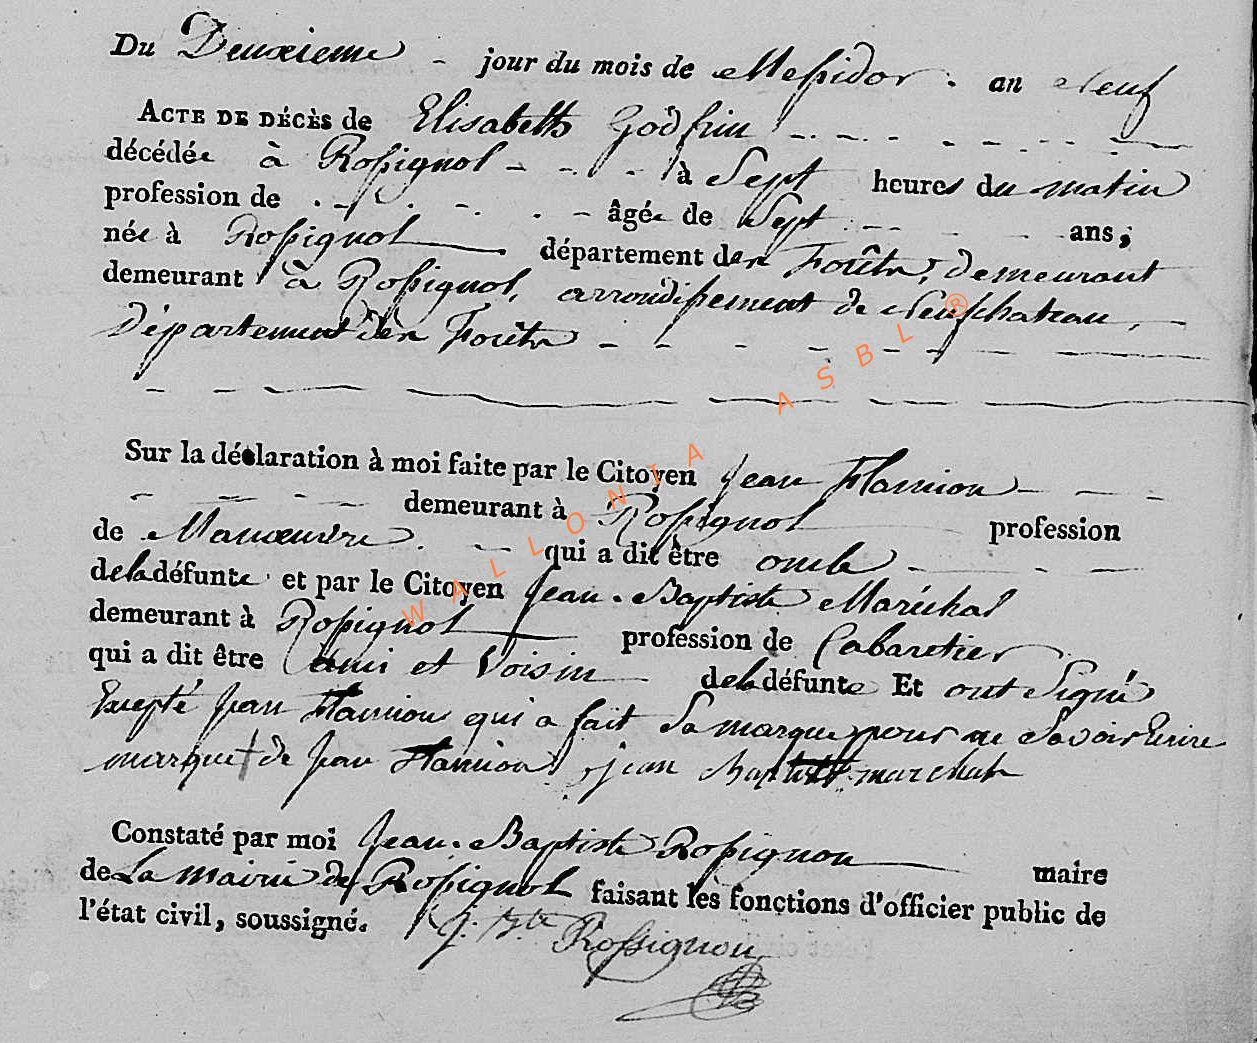 Du Deuxieme - jour du mois de Messidor. an Neuf
ACTE DE DÉCÈS de Elisabeth Godfrin
décédée à Rossignol - - - à Sept heures du matin
profession de . - . - . - âgée de Sept - - ans,
née à Rossignol département des Forêts, demeurant
demeurant à Rossignol, arrondissement de Neufchateau,
Département des Forêts - - - - -
Sur la déclaration à moi faite par le Citoyen Jean Hamion - - -
- - - - demeurant à Rossignol profession
de Manœuvre . - qui a dit être oncle - - -
de la défunte et par le Citoyen Jean-Baptiste Maréchal
demeurant à Rossignol profession de Cabaretier
qui a dit être ami et Voisin de la défunte Et ont Signé
Excepté Jean Hamion qui a fait Sa marque pour ne Savoir Ecrire
marque + de Jean Hamion jean baptiste marchal
Constaté par moi Jean-Baptiste Rossignon maire
de La mairie de Rossignol faisant les fonctions d'officier public de
l'état civil, soussigné. J. Bte Rossignon
WALLONIA ASBL ®